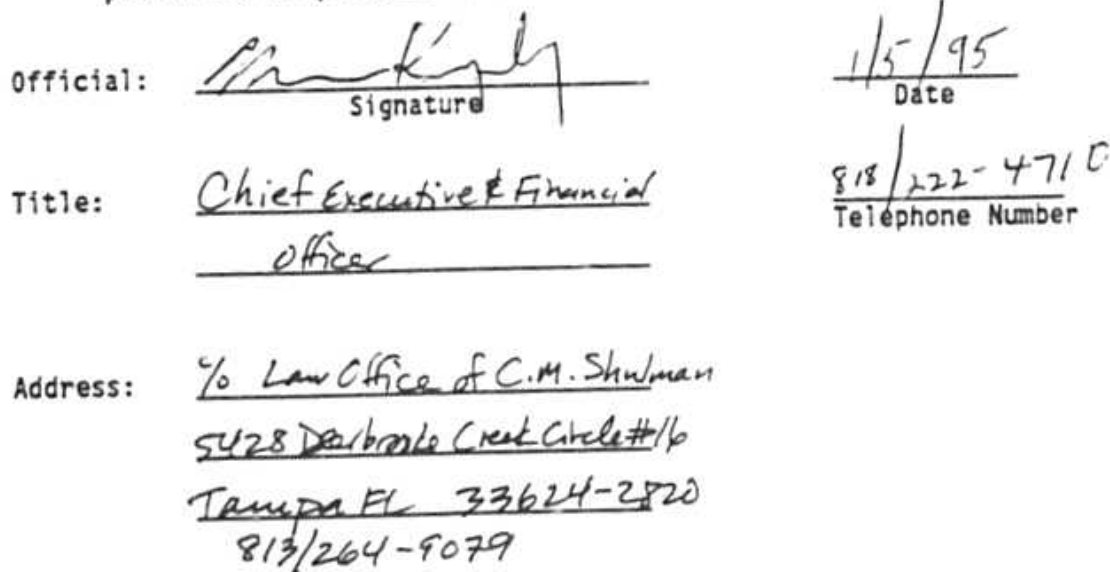 Official:
Signature
1/5/95
Date
Title: Chief Executive & Financial
Officer
818/222-4710
Telephone Number
Address: c/o Law Office of C.M. Shulman
5428 Deerbrooke Creek Circle #16
Tampa FL 33624-2820
813/264-9079